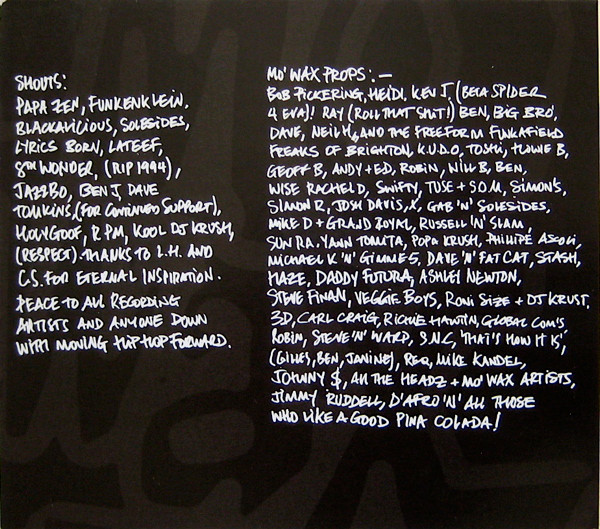 SHOUTS:
PAPA ZEN, FUNKENKLEIN.
BLACKALICIOUS, SOLESIDES,
LYRICS BORN, LATEEF,
8TH WONDER, (RIP 1994),
JAZZBO, BEN J, DAVE
TOMKINS, (FOR CONTINUED SUPPORT),
HOLYGOOF, RPM, KOOL DJ KRUSH,
(RESPECT). THANKS TO L.H. AND
C.S. FOR ETERNAL INSPIRATION.
PEACE TO ALL RECORDING
ARTISTS AND ANYONE DOWN
WITH MOVING HIP HOP FORWARD.
MO' WAX PROPS:—
BOB PICKERING, HEIDI, KEV J, (BETA SPIDER
4 EVA)! RAY (ROLL THAT SHIT!) BEN, BIG BRO',
DAVE, NEIL H, AND THE FREEFORM FUNKAFIELD
FREAKS OF BRIGHTON, K.U.D.O, TOSHI, HOWIE B,
GEOFF B, ANDY + ED, ROBIN, WILL B, BEN,
WISE RACHEL D, SWIFTY, TUSE + S.O.M, SIMON'S,
SIMON R, JOSH DAVIS, X, GAB 'N' SOLESIDES,
MIKE D + GRAND ROYAL, RUSSELL 'N' SLAM,
SUN RA, YANN TOMITA, POPA KRUSH, PHILIPE ASCOLI,
MICHAEL K 'N' GIMMES, DAVE 'N' FAT CAT, STASH,
HAZE, DADDY FUTURA, ASHLEY NEWTON,
STEVE FINAN, VEGGIE BOYS, RONI SIZE + DJ KRUST,
3D, CARL CRAIG, RICHIE HAWTIN, GLOBAL COM'S,
ROBIN, STEVE 'N' WARP, S.N.C, 'THAT'S HOW IT IS',
(GILLES, BEN, JANINE), REQ, MIKE KANDEL,
JOHNNY $, ALL THE HEADZ + MO' WAX ARTISTS,
JIMMY RUDDELL, D'AFRO 'N' ALL THOSE
WHO LIKE A GOOD PINA COLADA!